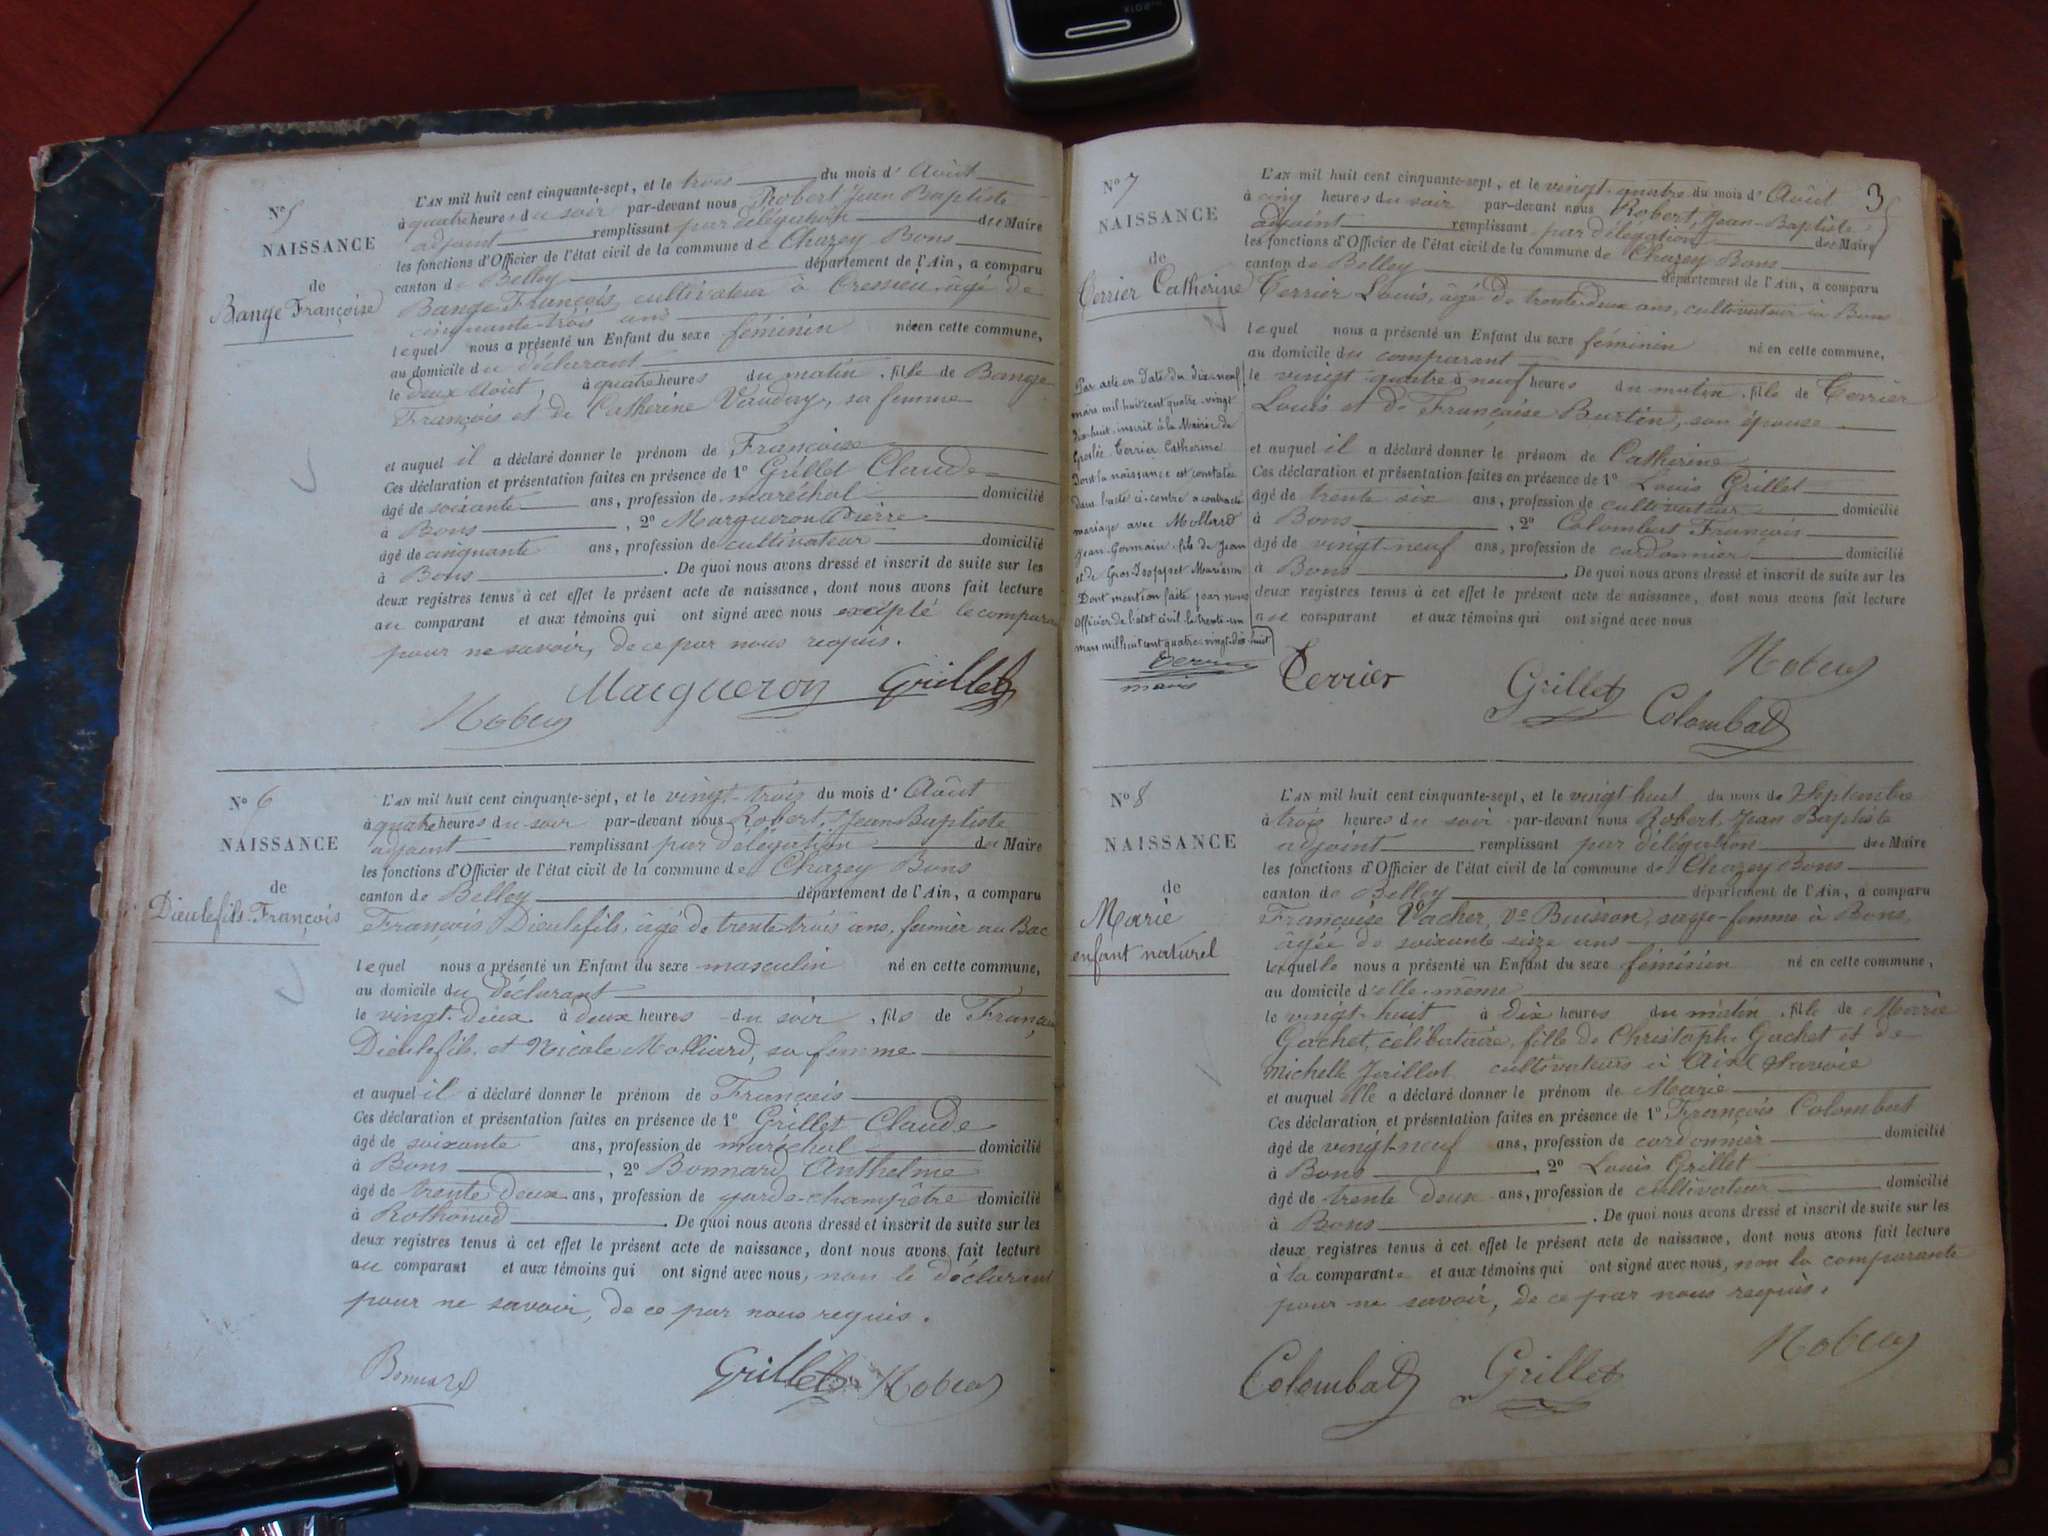 N° 5
NAISSANCE
de
Bange Françoise
L'AN mil huit cent cinquante-sept, et le trois du mois d' Août
à quatre heures du soir par-devant nous Robert Jean Baptiste
adjoint remplissant par délégation du Maire
les fonctions d'Officier de l'état civil de la commune de Chazey Bons
canton de Belley département de l'Ain, a comparu
Bange François, cultivateur à Cressieu, âgé de
cinquante-trois ans
lequel nous a présenté un Enfant du sexe féminin né en cette commune,
au domicile du déclarant
le deux Août, à quatre heures du matin, fille de Bange
François et de Catherine Vauday, sa femme
et auquel il a déclaré donner le prénom de Françoise
Ces déclaration et présentation faites en présence de 1° Grillet Claude
âgé de soixante ans, profession de maréchal domicilié
à Bons, 2° Marqueron Pierre
âgé de cinquante ans, profession de cultivateur domicilié
à Bons. De quoi nous avons dressé et inscrit de suite sur les
deux registres tenus à cet effet le présent acte de naissance, dont nous avons fait lecture
au comparant et aux témoins qui ont signé avec nous excépté le comparant
pour ne savoir, de ce par nous requis.
Marqueron Grillet
Robert
N° 6
NAISSANCE
de
Dieulefils François
L'AN mil huit cent cinquante-sept, et le vingt-trois du mois d' Août
à quatre heures du soir par-devant nous Robert, Jean Baptiste
adjoint remplissant par délégation du Maire
les fonctions d'Officier de l'état civil de la commune de Chazey Bons
canton de Belley département de l'Ain, a comparu
François Dieulefils, âgé de trente trois ans, fermier au Bac
lequel nous a présenté un Enfant du sexe masculin né en cette commune,
au domicile du déclarant
le vingt-deux à deux heures du soir, fils de François
Dieulefils, et Nicole Molliard, sa femme
et auquel il a déclaré donner le prénom de François
Ces déclaration et présentation faites en présence de 1° Grillet Claude
âgé de soixante ans, profession de maréchal domicilié
à Bons, 2° Bonnard Anthelme
âgé de trente deux ans, profession de garde-champêtre domicilié
à Rothonod. De quoi nous avons dressé et inscrit de suite sur les
deux registres tenus à cet effet le présent acte de naissance, dont nous avons fait lecture
au comparant et aux témoins qui ont signé avec nous, non le déclarant
pour ne savoir, de ce par nous requis.
Bonnard Grillet Robert
3
N° 7
NAISSANCE
de
Terrier Catherine
L'AN mil huit cent cinquante-sept, et le vingt-quatre du mois d' Août
à cinq heures du soir par-devant nous Robert, Jean-Baptiste
adjoint remplissant par délégation du Maire
les fonctions d'Officier de l'état civil de la commune de Chazey Bons
canton de Belley département de l'Ain, a comparu
Terrier Louis, âgé de trente-deux ans, cultivateur à Bons
lequel nous a présenté un Enfant du sexe féminin né en cette commune,
au domicile du comparant
le vingt-quatre à neuf heures du matin, fille de Terrier
Louis et de Françoise Burtin, son épouse
et auquel il a déclaré donner le prénom de Catherine
Ces déclaration et présentation faites en présence de 1° Louis Grillet
âgé de trente six ans, profession de cultivateur domicilié
à Bons, 2° Colombat François
âgé de vingt-neuf ans, profession de cordonnier domicilié
à Bons. De quoi nous avons dressé et inscrit de suite sur les
deux registres tenus à cet effet le présent acte de naissance, dont nous avons fait lecture
au comparant et aux témoins qui ont signé avec nous
Terrier Grillet Robert
Colombat
Par acte en date du dix-neuf
mars mil huit cent quatre-vingt
dix-huit, inscrit à la Mairie de
Groslée Terrier Catherine
dont la naissance est constatée
dans l'acte ci-contre a contracté
mariage avec Mollard
Jean-Germain, fils de Jean
et de
Dont mention faite par nous
Officier de l'état civil le trente-un
mars mil huit cent quatre-vingt-dix-huit
maire
N° 8
NAISSANCE
de
Marie
enfant naturel
L'AN mil huit cent cinquante-sept, et le vingt huit du mois de Septembre
à trois heures du soir par-devant nous Robert, Jean Baptiste
adjoint remplissant par délégation du Maire
les fonctions d'Officier de l'état civil de la commune de Chazey Bons
canton de Belley département de l'Ain, a comparu
Françoise Vacher, Ve Buisson, sage-femme à Bons,
âgée de soixante seize ans
laquelle nous a présenté un Enfant du sexe féminin né en cette commune,
au domicile d'elle-même
le vingt-huit à dix heures du matin, fille de Marie
Gachet, célibataire, fille de Christophe Gachet et de
Michelle cultivateurs à Aix Savoie
et auquel elle a déclaré donner le prénom de Marie
Ces déclaration et présentation faites en présence de 1° François Colombat
âgé de vingt-neuf ans, profession de cordonnier domicilié
à Bons, 2° Louis Grillet
âgé de trente deux ans, profession de cultivateur domicilié
à Bons. De quoi nous avons dressé et inscrit de suite sur les
deux registres tenus à cet effet le présent acte de naissance, dont nous avons fait lecture
à la comparante et aux témoins qui ont signé avec nous, non la comparante
pour ne savoir, de ce par nous requis.
Colombat Grillet Robert